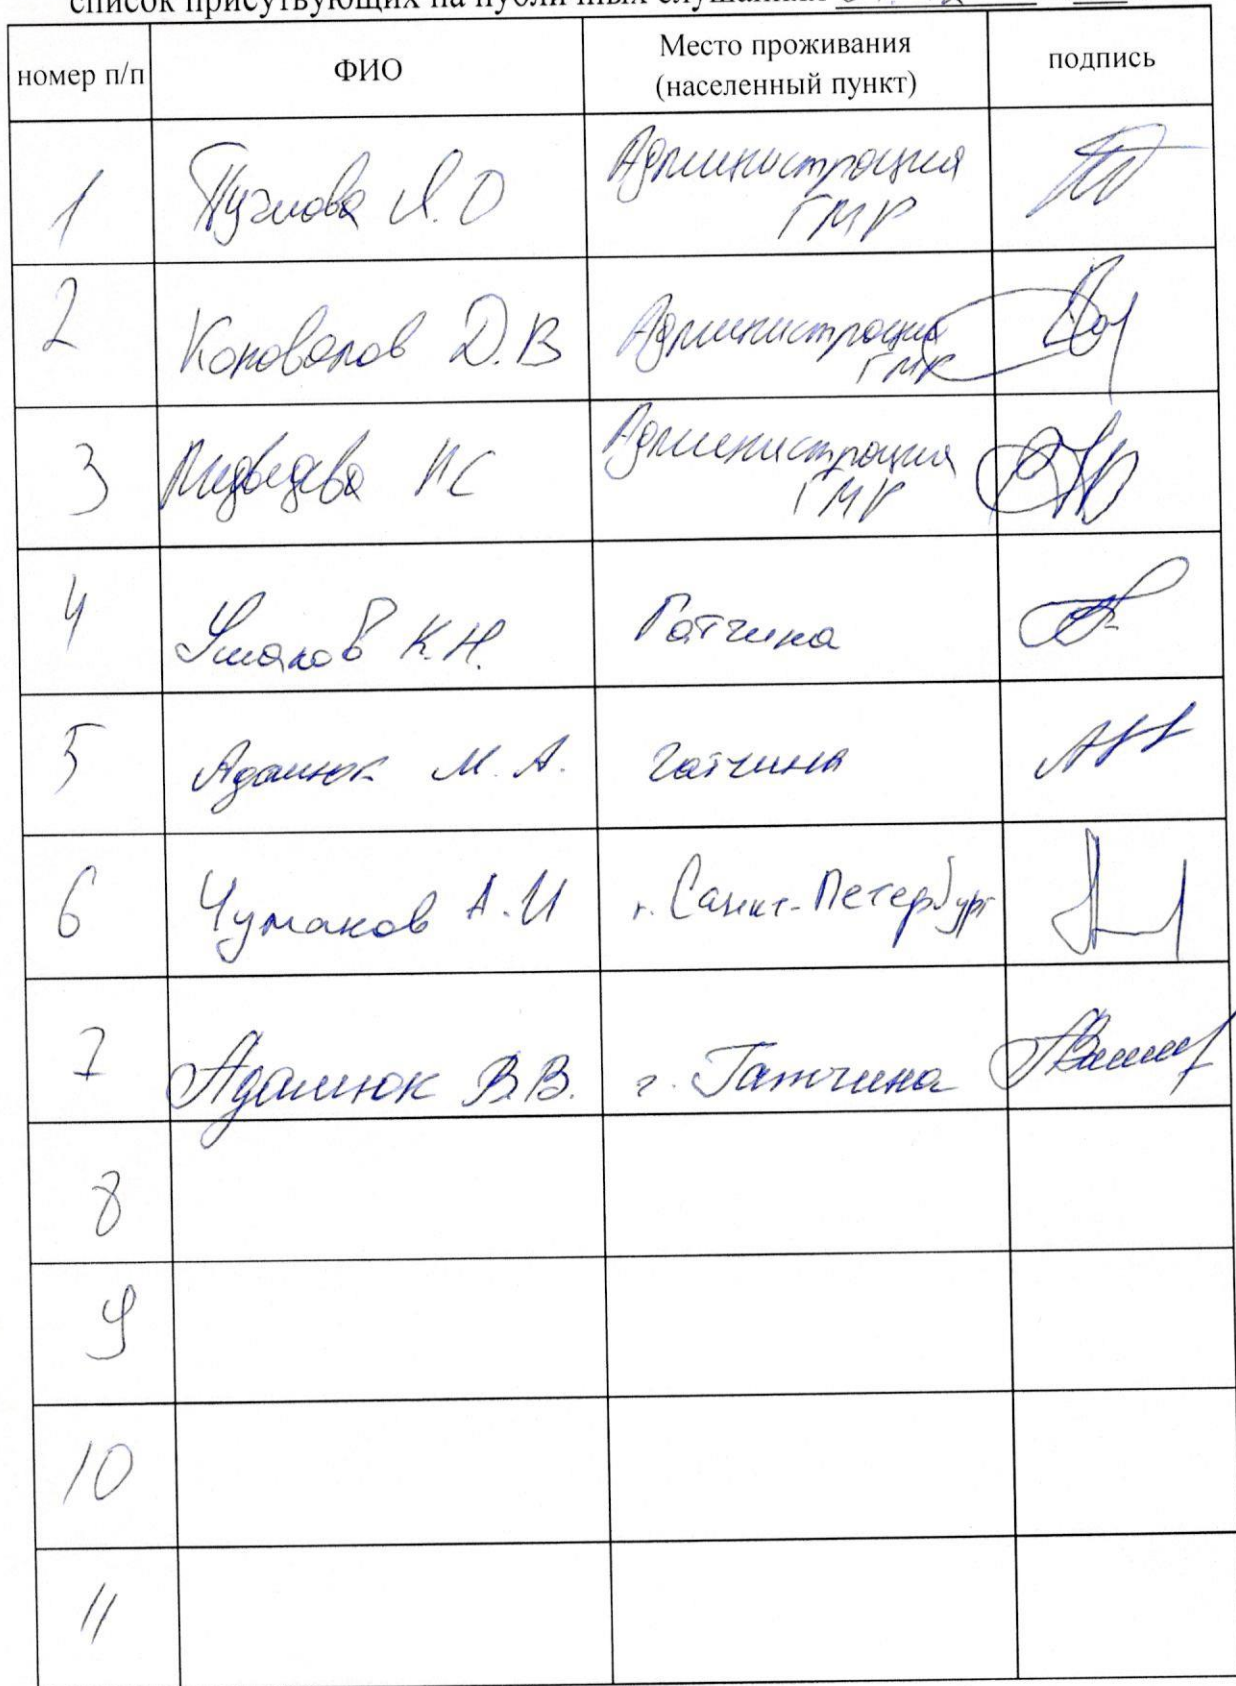 список присутвующих на публичных слушаниях
номер п/п ФИО Место проживания (населенный пункт) подпись
1 А.О Администрация ГМР
2 Коновалов Д.В Администрация ГМР
3 Медведева НС Администрация ГМР
4 Ушаков К.Н. Гатчина
5 Адамюк М.А. Гатчина
6 Чумаков А.И г. Санкт-Петербург
7 Адамюк В.В. г. Гатчина
8
9
10
11